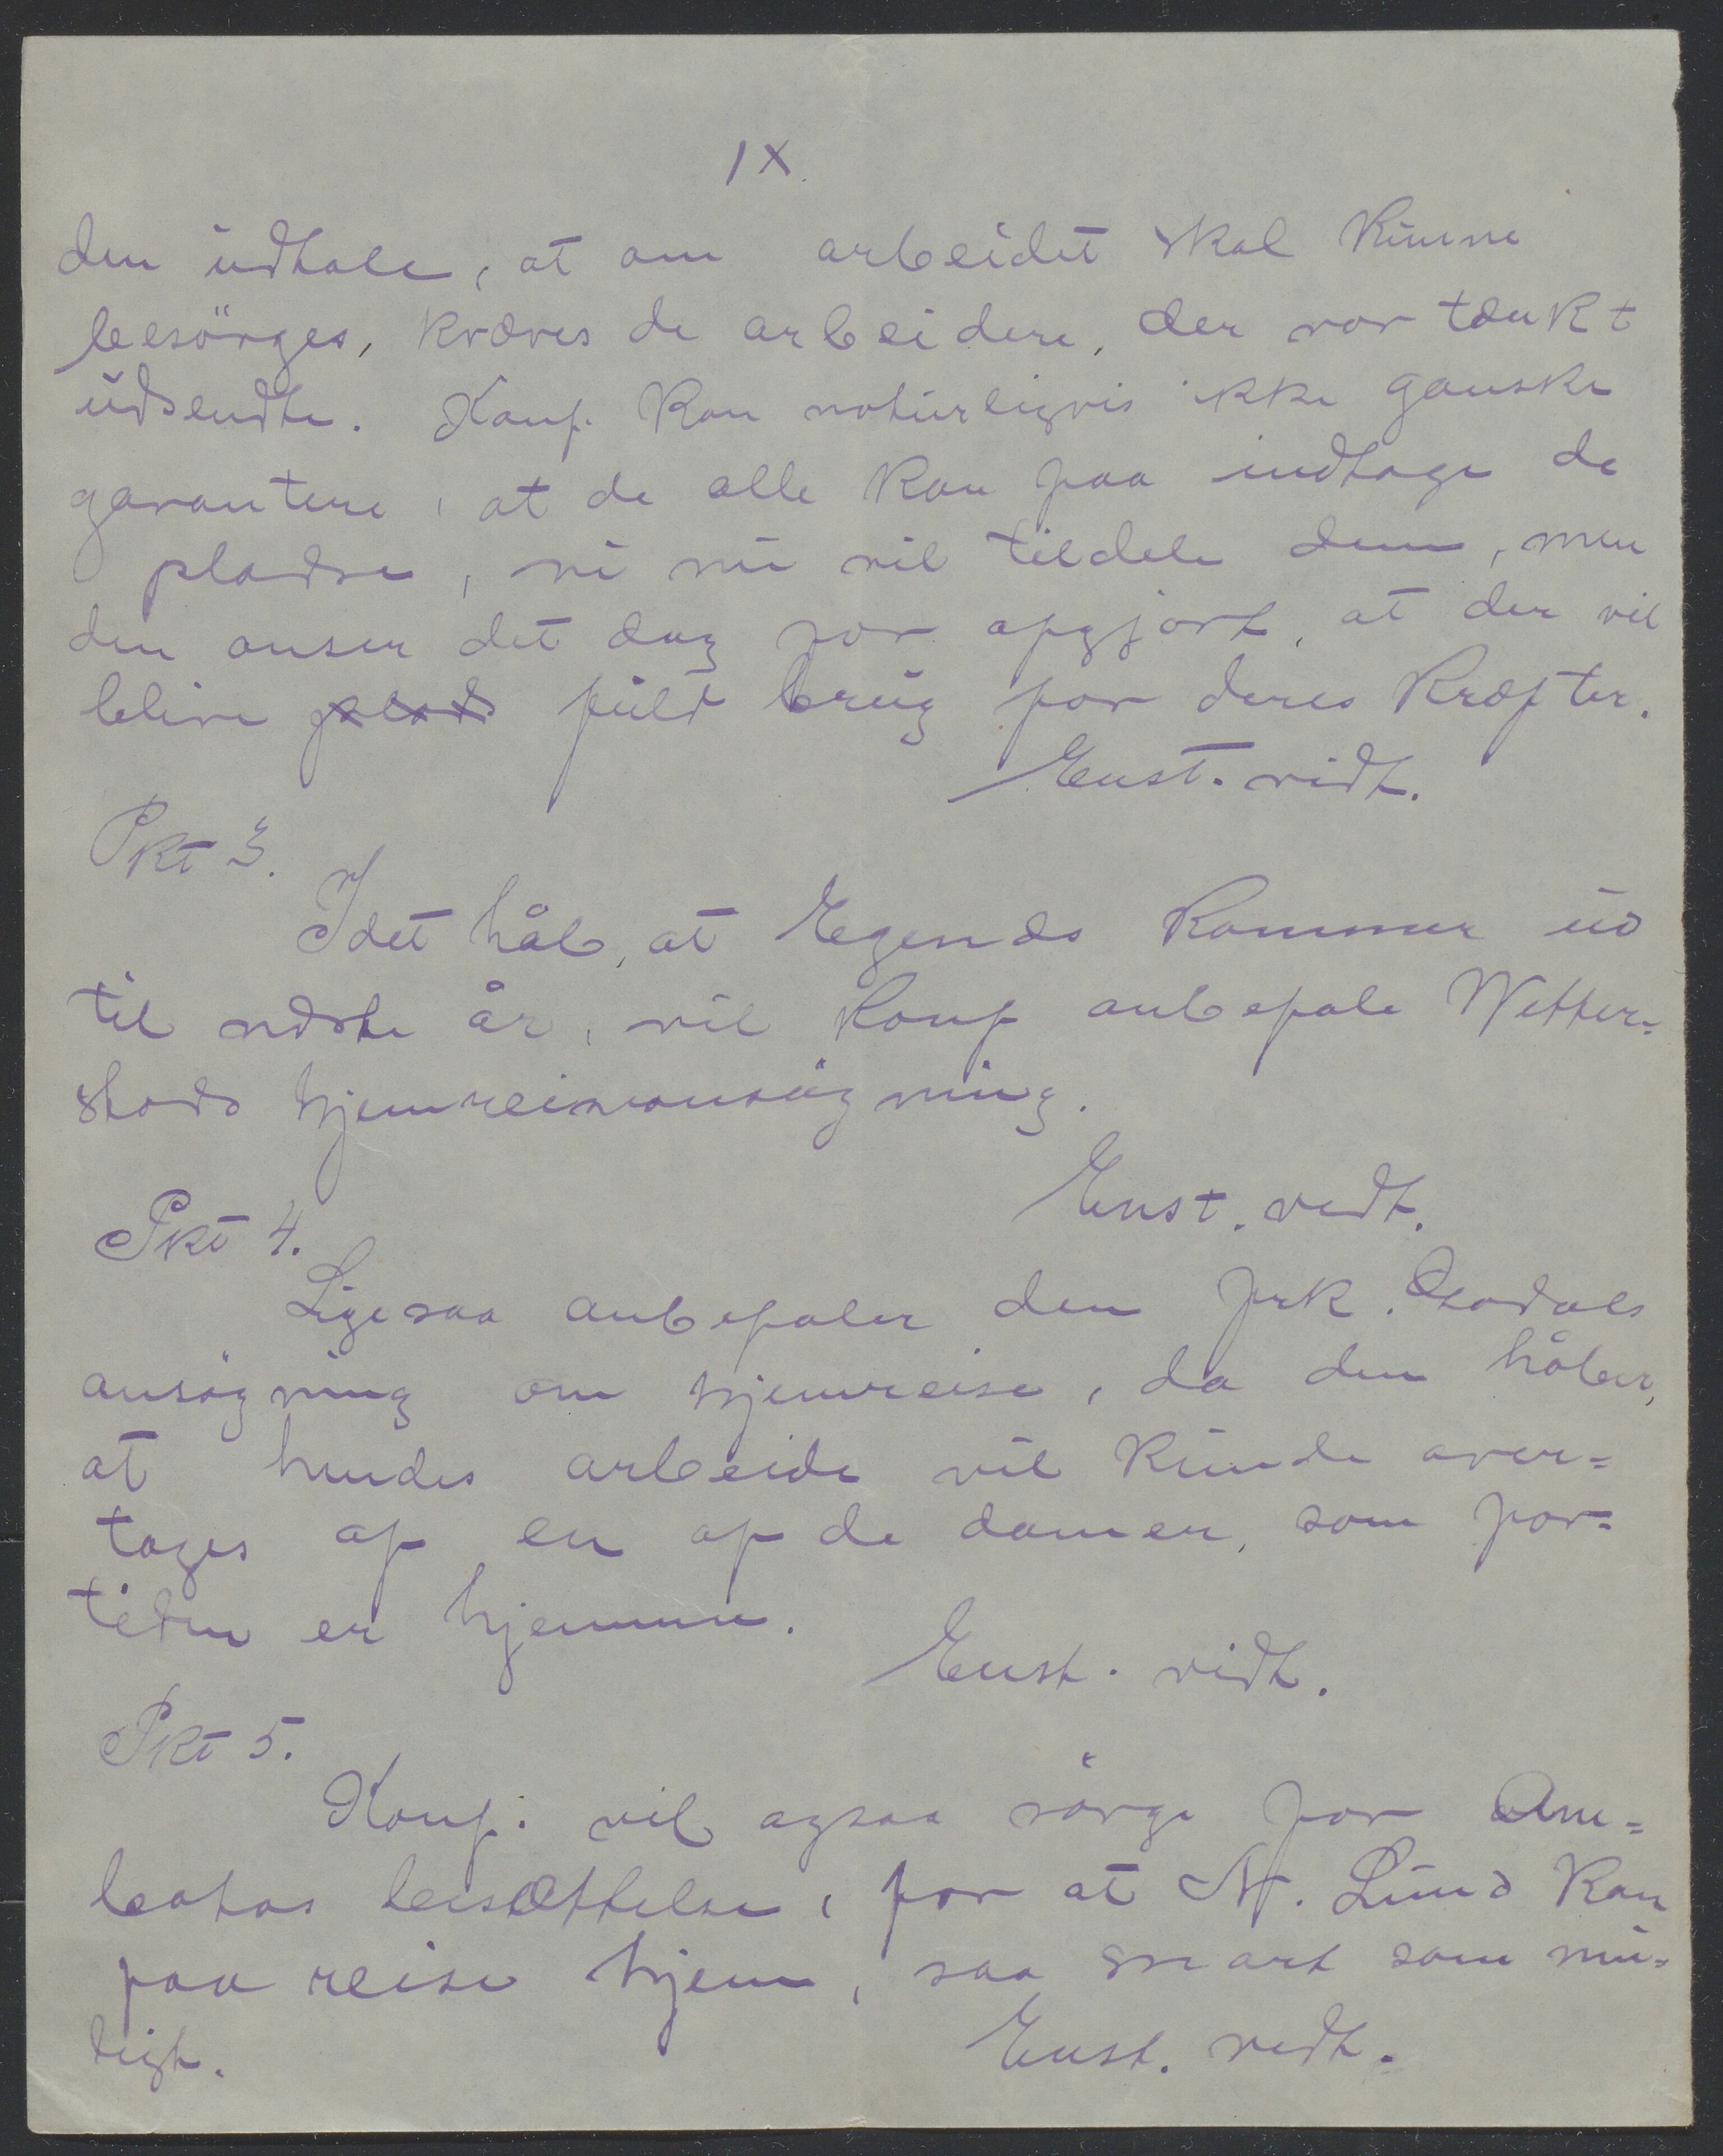 IX.
den udtale, at om arbeidet skal kunne
besörges, kræves de arbeidere, der var tænkt
udsendte. Konf. kan naturligvis ikke ganske
garantere, at de alle kan faa indtage de
pladse, vi nu vil tildele dem, men
den anser det dog for afgjort, at der vil
blive plads fuld brug for deres kræfter.
Enst. vedt.
Pkt 3.
I det håb, at Egenæs kommer ud
til næste år, vil konf anbefale Wetter=
stads hjemreiseansögning.
Enst. vedt.
Pkt 4.
Ligesaa anbefaler den frk. Osadals
ansögning om hjemreise, da den håber,
at hendes arbeide vil kunde over=
tages af en af de damer, som for=
tiden er hjemme.
Enst. vedt.
Pkt 5.
Konf. vil ogsaa sörge for Am=
boatos besættelse, for at N. Lund kan
faa reise hjem, saa snart som mu=
ligt.
Enst. vedt.